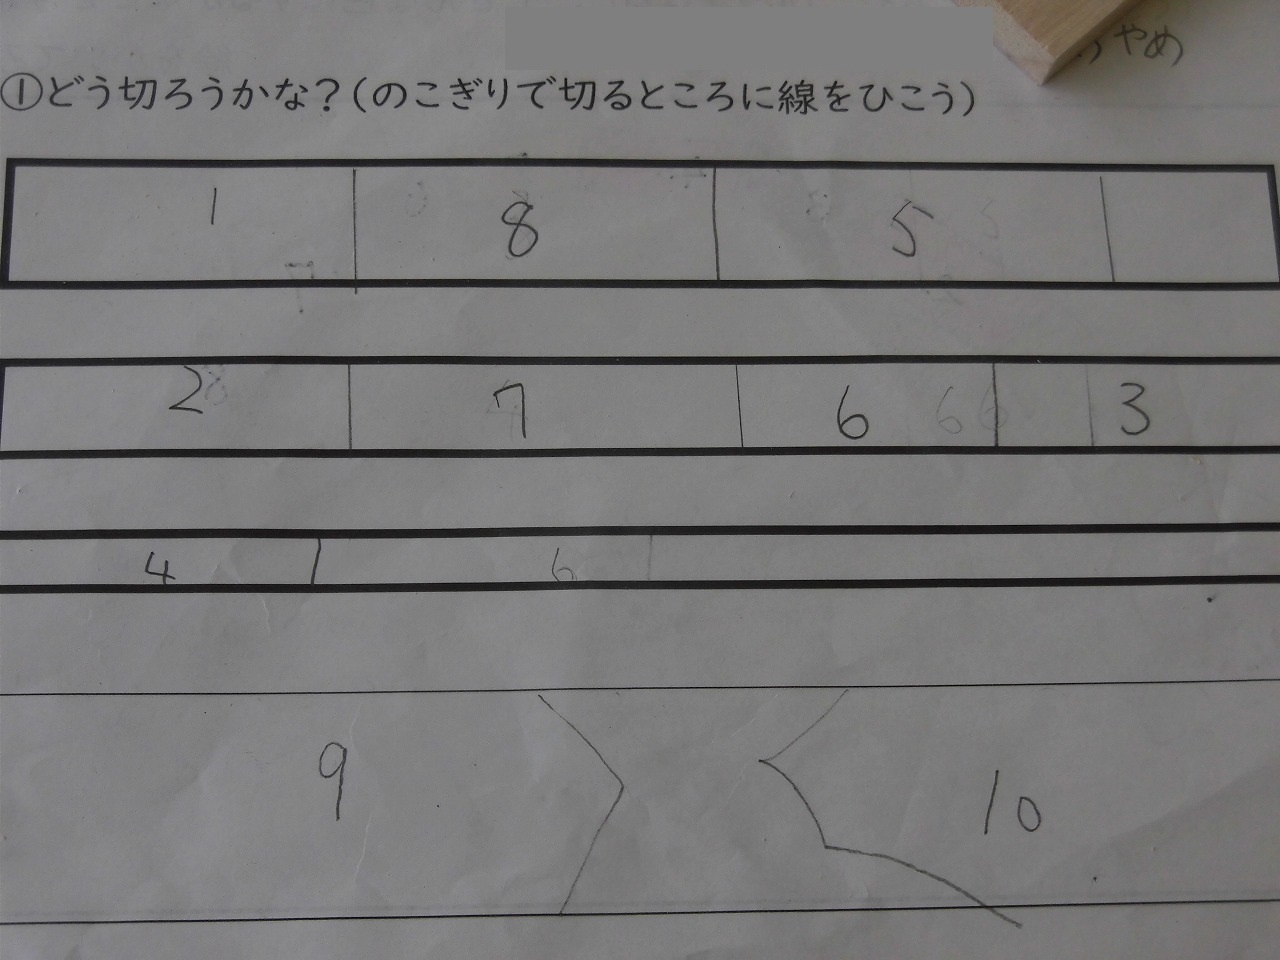 やめ
①どう切ろうかな？(のこぎりで切るところに線をひこう)
1 8 5
2 7 6 3
4 6
9 10